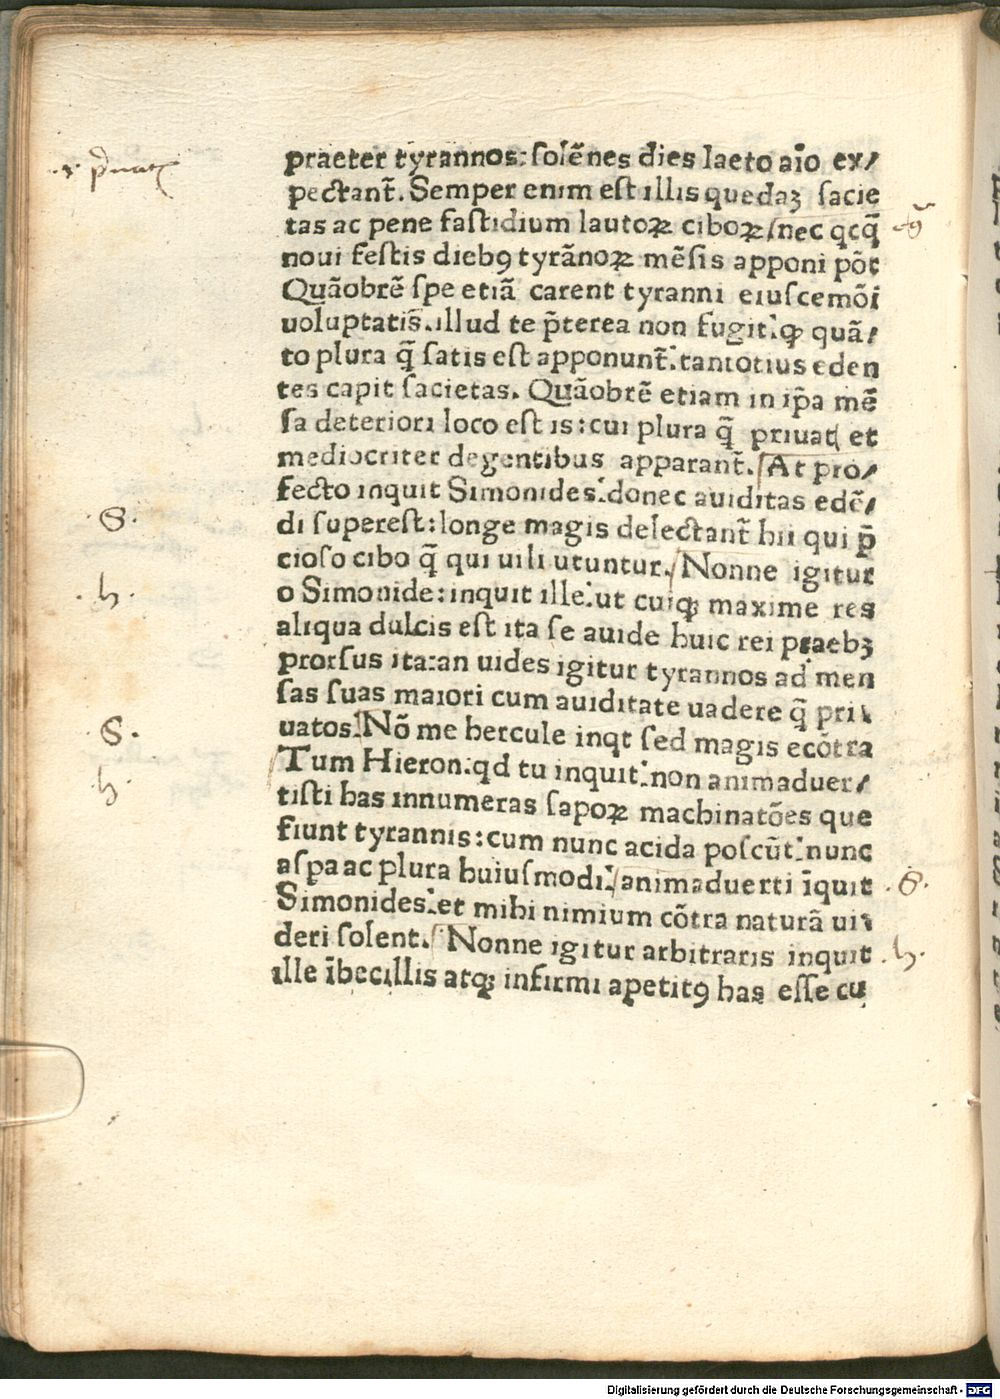 praeter tyrannos: solẽnes dies laeto aĩo ex/
pectant̃. Semper enim est illis quedaꝫ sacie
tas ac pene fastidium lautoꝝ ciboꝝ/nec qcq̃
noui festis diebꝯ tyrãnoꝝ mẽsis apponi põt
Quãobrẽ spe etiã carent tyranni eiuscemõi
uoluptatis. illud te p̃terea non fugit: ꝙ quã/
to plura q̃ satis est apponunt̃: tantotius eden
tes capit sacietas. Quãobrẽ etiam in ip̃a mẽ
sa deteriori loco est is: cui plura q̃ priuat( et
mediocriter degentibus apparant̃. At pro/
fecto inquit Simonides: donec auiditas edẽ/
di superest: longe magis delectant̃ hii qui p̃
cioso cibo q̃ qui uili utuntur. Nonne igitur
o Simonide: inquit ille: ut cuiqꝫ maxime res
aliqua dulcis est ita se auide huic rei praebꝫ
prorsus ita: an uides igitur tyrannos ad men
sas suas maiori cum auiditate uadere q̃ pri
uatos: Nõ me hercule inqt sed magis ecõtra
Tum Hieron: qd tu inquit: non animaduer/
tisti has innumeras sapoꝝ machinatões que
fiunt tyrannis: cum nunc acida poscũt: nunc
aspa ac plura huiusmodi: animaduerti ĩquit
Simonides: et mihi nimium cõtra naturã ui
deri solent. Nonne igitur arbitraris inquit
ille ĩbecillis atqꝫ infirmi apetitꝯ has esse cu
.S.
.h.
S.
h
.S.
.h.
Digitalisierung gefördert durch die Deutsche Forschungsgemeinschaft - DFG